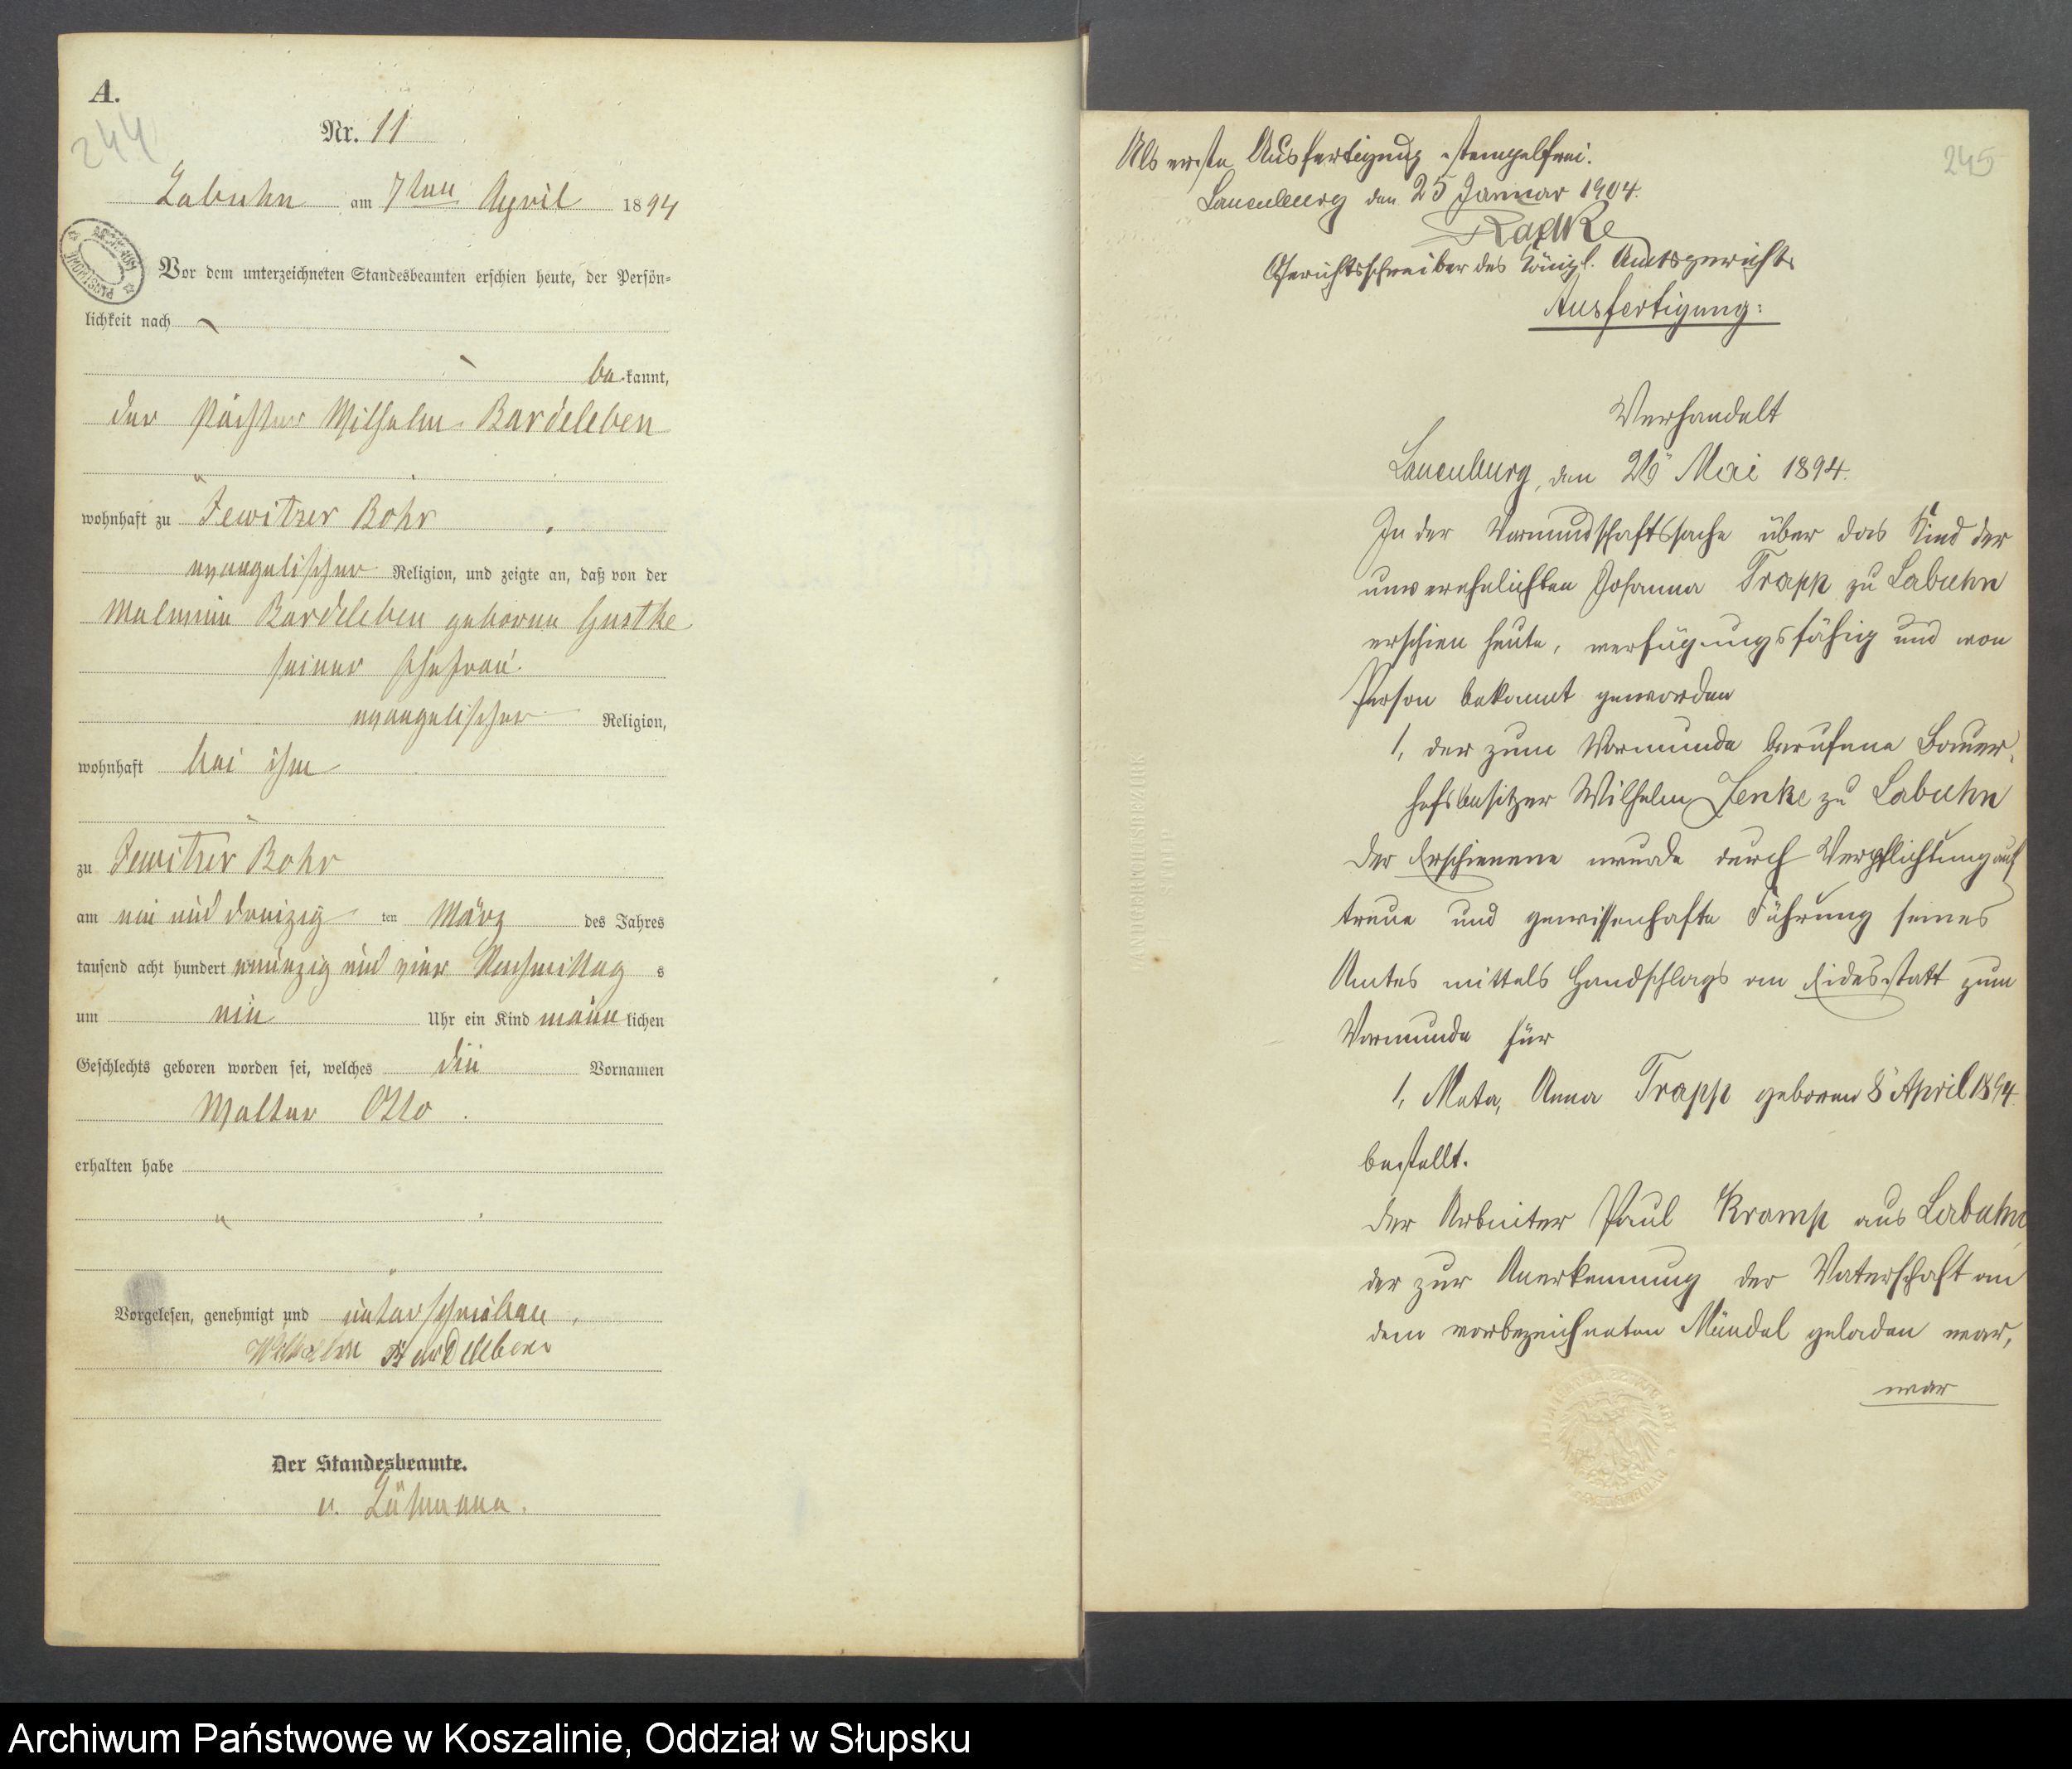 A.
244
Nr. 11
Labuhn am 7ten April 1894
Vor dem unterzeichneten Standesbeamten erschien heute, der Persön-
lichkeit nach
be kannt,
der Pächter Wilhelm Bardeleben
wohnhaft zu Jewitzer Bohr
evangelischer Religion, und zeigte an, daß von der
Bardeleben geborne Gustke
seiner Ehefrau
evangelischer Religion,
wohnhaft bei ihm
zu Jewitzer Bohr
am ein und dreizig ten März des Jahres
tausend acht hundert neunzig und vier Nachmittag s
um ein Uhr ein Kind männ lichen
Geschlechts geboren worden sei, welches die Vornamen
Walter Otto
erhalten habe
Vorgelesen, genehmigt und unterschrieben
Wilhelm Bardeleben
Der Standesbeamte.
245
Als erste Ausfertigung stempelfrei.
Lauenburg den 25 Januar 1904.
Radke
Gerichtsschreiber des Königl. Amtsgerichts
Ausfertigung:
Verhandelt
Lauenburg, den 26 Mai 1894.
In der Vormundschaftssache über das Kind der
unverehelichten Johanna Trapp zu Labuhn
erschien heute, verfügungsfähig und von
Person bekannt geworden
1, der zum Vormunde berufene Bauer-
hofsbesitzer Wilhelm Jenke zu Labuhn
Der Erschienene wurde durch Verpflichtung auf
treue und gewissenhafte Führung seines
Amtes mittels Handschlags an Eidesstatt zum
Vormunde für
1, Meta, Anna Trapp geboren 8 April 1894.
bestellt.
Der Arbeiter Paul Kramp aus Labuhn,
der zur Anerkennung der Vaterschaft an
dem vorbezeichneten Mündel geladen war,
war
Archiwum Państwowe w Koszalinie, Oddział w Słupsku